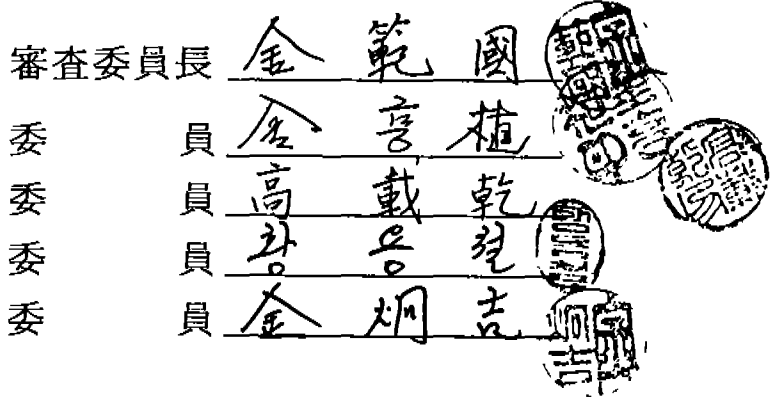 審査委員長 金範國
委員 金亨植
委員 高載乾
委員 황용철
委員 金炯吉